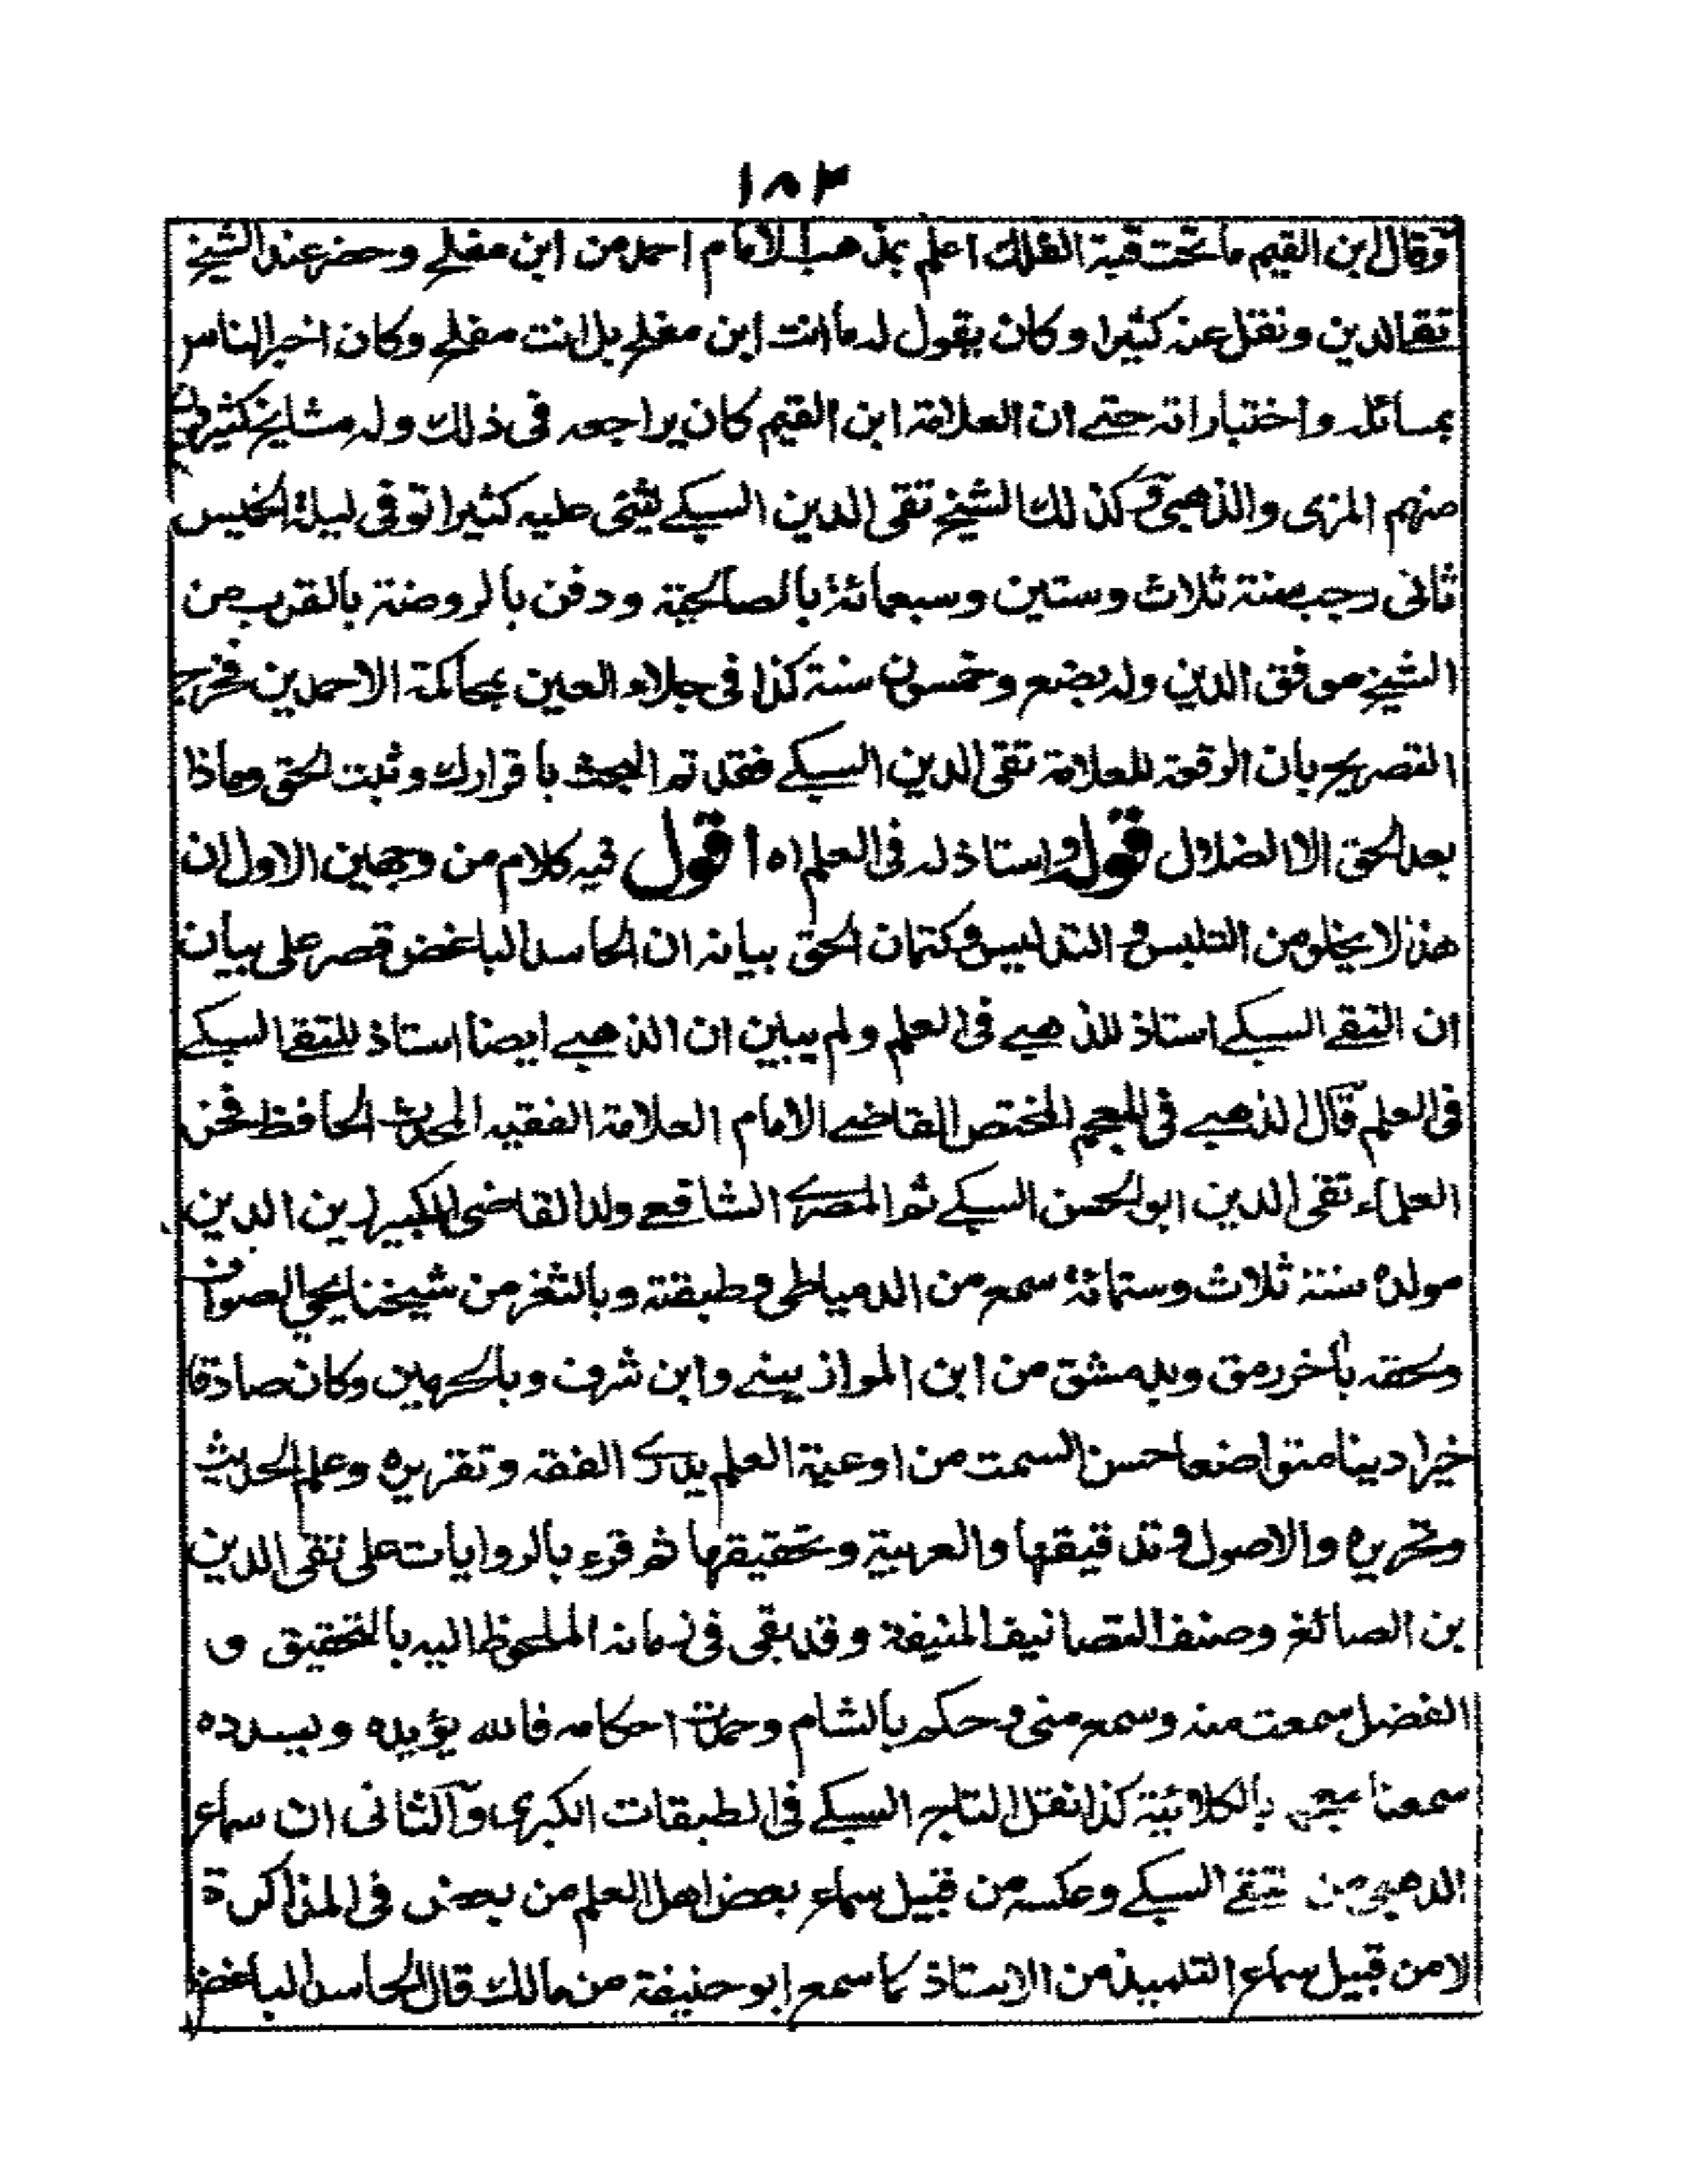 ١٨٣
وقال ابن القيم ما تحت قبة الفلك اعلم بمذهب الامام احمد من ابن مفلح وحضر عند الشيخ
تقے الدين ونقل عنه كثيرا وكان يقول له ما انت ابن مفلح بل انت مفلح وكان اخبر الناس
بمسائله واختياراته حتے ان العلامة ابن القيم كان يراجعه فى ذلك وله مشايخ كثيرون
منهم المزى والذهبى وكذلك الشيخ تقى الدين السبكے يثنى عليه كثيرا توفى ليلة الخميس
ثانى رجب سنة ثلاث وستين وسبعمائة بالصالحية ودفن بالروضة بالقرب من
الشيخ موفق الدين وله بضع وخمسون سنة كذا فى جلاء العين بمحاكمة الاحمدين فخرج
التصريح بان الرقعة للعلامة تقى الدين السبكے فقد تم البحث باقرارك وثبت الحق وماذا
بعد الحق الا الضلال قوله واستاذ له فى العلم اه اقول فيه كلام من وجهين الاول ان
هذا لا يخلو من التلبس والتدليس وكتمان الحق بيانه ان الحاسد الباغض قصر على بيان
ان التقے السبكے استاذ للذهبے فى العلم ولم يبين ان الذهبے ايضا استاذ للتقے السبكے
فى العلم قال الذهبے فى المعجم المختص القاضے الامام العلامة الفقيه المحدث الحافظ فخر
العلماء تقى الدين ابو الحسن السبكے ثم المصرے الشافعے ولد القاضى الكبير زين الدين
مولده سنة ثلاث وستمائة سمع من الدمياطى وطبقته وبالثغر من شيخنا يحيى الصواف
ولحقه بآخر رمق وبدمشق من ابن الموازينے وابن شرف وبالحرمين وكان صادقا
خيرا دينا متواضعا حسن السمت من اوعية العلم يدرك الفقه وتقريره وعلم الحديث
وتحريره والاصول وتدقيقها والعربية وتحقيقها ثم قرء بالروايات على تقى الدين
بن الصائغ وصنف التصانيف المنيفة وقد بقى فى زمانه الملحوظ اليه بالتحقيق و
الفضل سمعت منه وسمع منى وحكم بالشام وحمدت احكامه فالله يؤيده ويسدده
سمعنا معجمه بالكلائية كذا نقل التاج السبكے فى الطبقات الكبرى والثانى ان سماع
الذهبى من التقے السبكے وعكسه من قبيل سماع بعض اهل العلم من بعض فى المذاكرة
لا من قبيل سماع التلميذ من الاستاذ كما سمع ابو حنيفة من مالك قال الحاسد الباغض